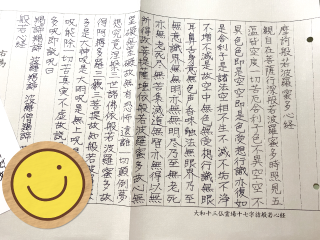 摩訶般若波羅蜜多心経
観自在菩薩行深般若波羅蜜多時照見五
蘊皆空度一切苦厄舎利子色不異空空不
異色色即是空空即是色受想行識亦復如
是舎利子是諸法空相不生不滅不垢不浄
不増不減是故空中無色無受想行識無眼
耳鼻舌身意無色声香味触法無眼界乃至
無意識界無無明亦無無明尽乃至無老死
亦無老死尽無苦集滅道無智亦無得以無
所得故菩提薩埵依般若波羅蜜多故心無
罣礙無罣礙故無有恐怖遠離一切顛倒夢
想究竟涅槃三世諸仏依般若波羅蜜多故
得阿耨多羅三藐三菩提故知般若波羅蜜
多是大神呪是大明呪是無上呪
呪能除一切苦真実不虚故説
多呪即説呪曰
羯諦羯諦 波羅羯諦 波羅僧羯諦
般若心経
大和十三仏霊場十七字詰般若心経